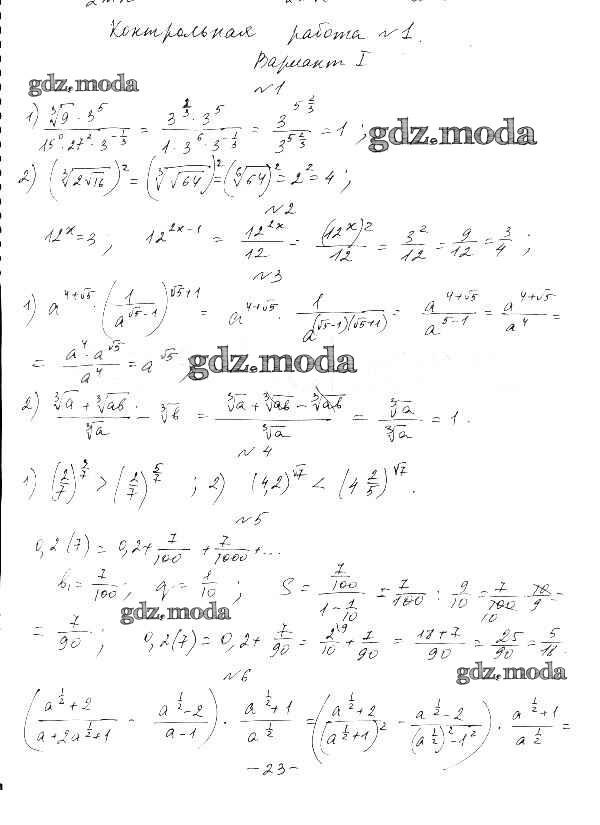 Контрольная работа №1.
Вариант I
gdz.moda
№1
1) ∛9 · 3^5 / (15^0 · 27^2 · 3^(-1/3)) = 3^(2/3) · 3^5 / (1 · 3^6 · 3^(-1/3)) = 3^(5 2/3) / 3^(5 2/3) = 1 ; gdz.moda
2) (∛(2√16))^2 = (∛(√64))^2 = (⁶√64)^2 = 2^2 = 4 ;
№2
12^x = 3 ; 12^(2x-1) = 12^(2x) / 12 = (12^x)^2 / 12 = 3^2 / 12 = 9/12 = 3/4 ;
№3
1) a^(4+√5) · (1 / a^(√5-1))^(√5+1) = a^(4+√5) · 1 / a^((√5-1)(√5+1)) = a^(4+√5) / a^(5-1) = a^(4+√5) / a^4 =
= a^4 · a^√5 / a^4 = a^√5 gdz.moda
2) (∛a + ∛ab) / ∛a - ∛b = (∛a + ∛ab - ∛ab) / ∛a = ∛a / ∛a = 1 .
№4
1) (2/7)^(2/7) > (2/7)^(5/7) ; 2) (4,2)^√7 < (4 2/5)^√7 .
№5
0,2(7) = 0,2 + 7/100 + 7/1000 + ...
b₁ = 7/100 ; q = 1/10 ; S = (7/100) / (1 - 1/10) = 7/100 : 9/10 = 7/100 · 10/9 =
gdz.moda
= 7/90 ; 0,2(7) = 0,2 + 7/90 = 2/10 + 7/90 = (18+7)/90 = 25/90 = 5/18 .
gdz.moda
№6
((a^(1/2) + 2) / (a + 2a^(1/2) + 1) - (a^(1/2) - 2) / (a - 1)) · (a^(1/2) + 1) / a^(1/2) = ((a^(1/2) + 2) / (a^(1/2) + 1)^2 - (a^(1/2) - 2) / ((a^(1/2))^2 - 1^2)) · (a^(1/2) + 1) / a^(1/2) =
-23-